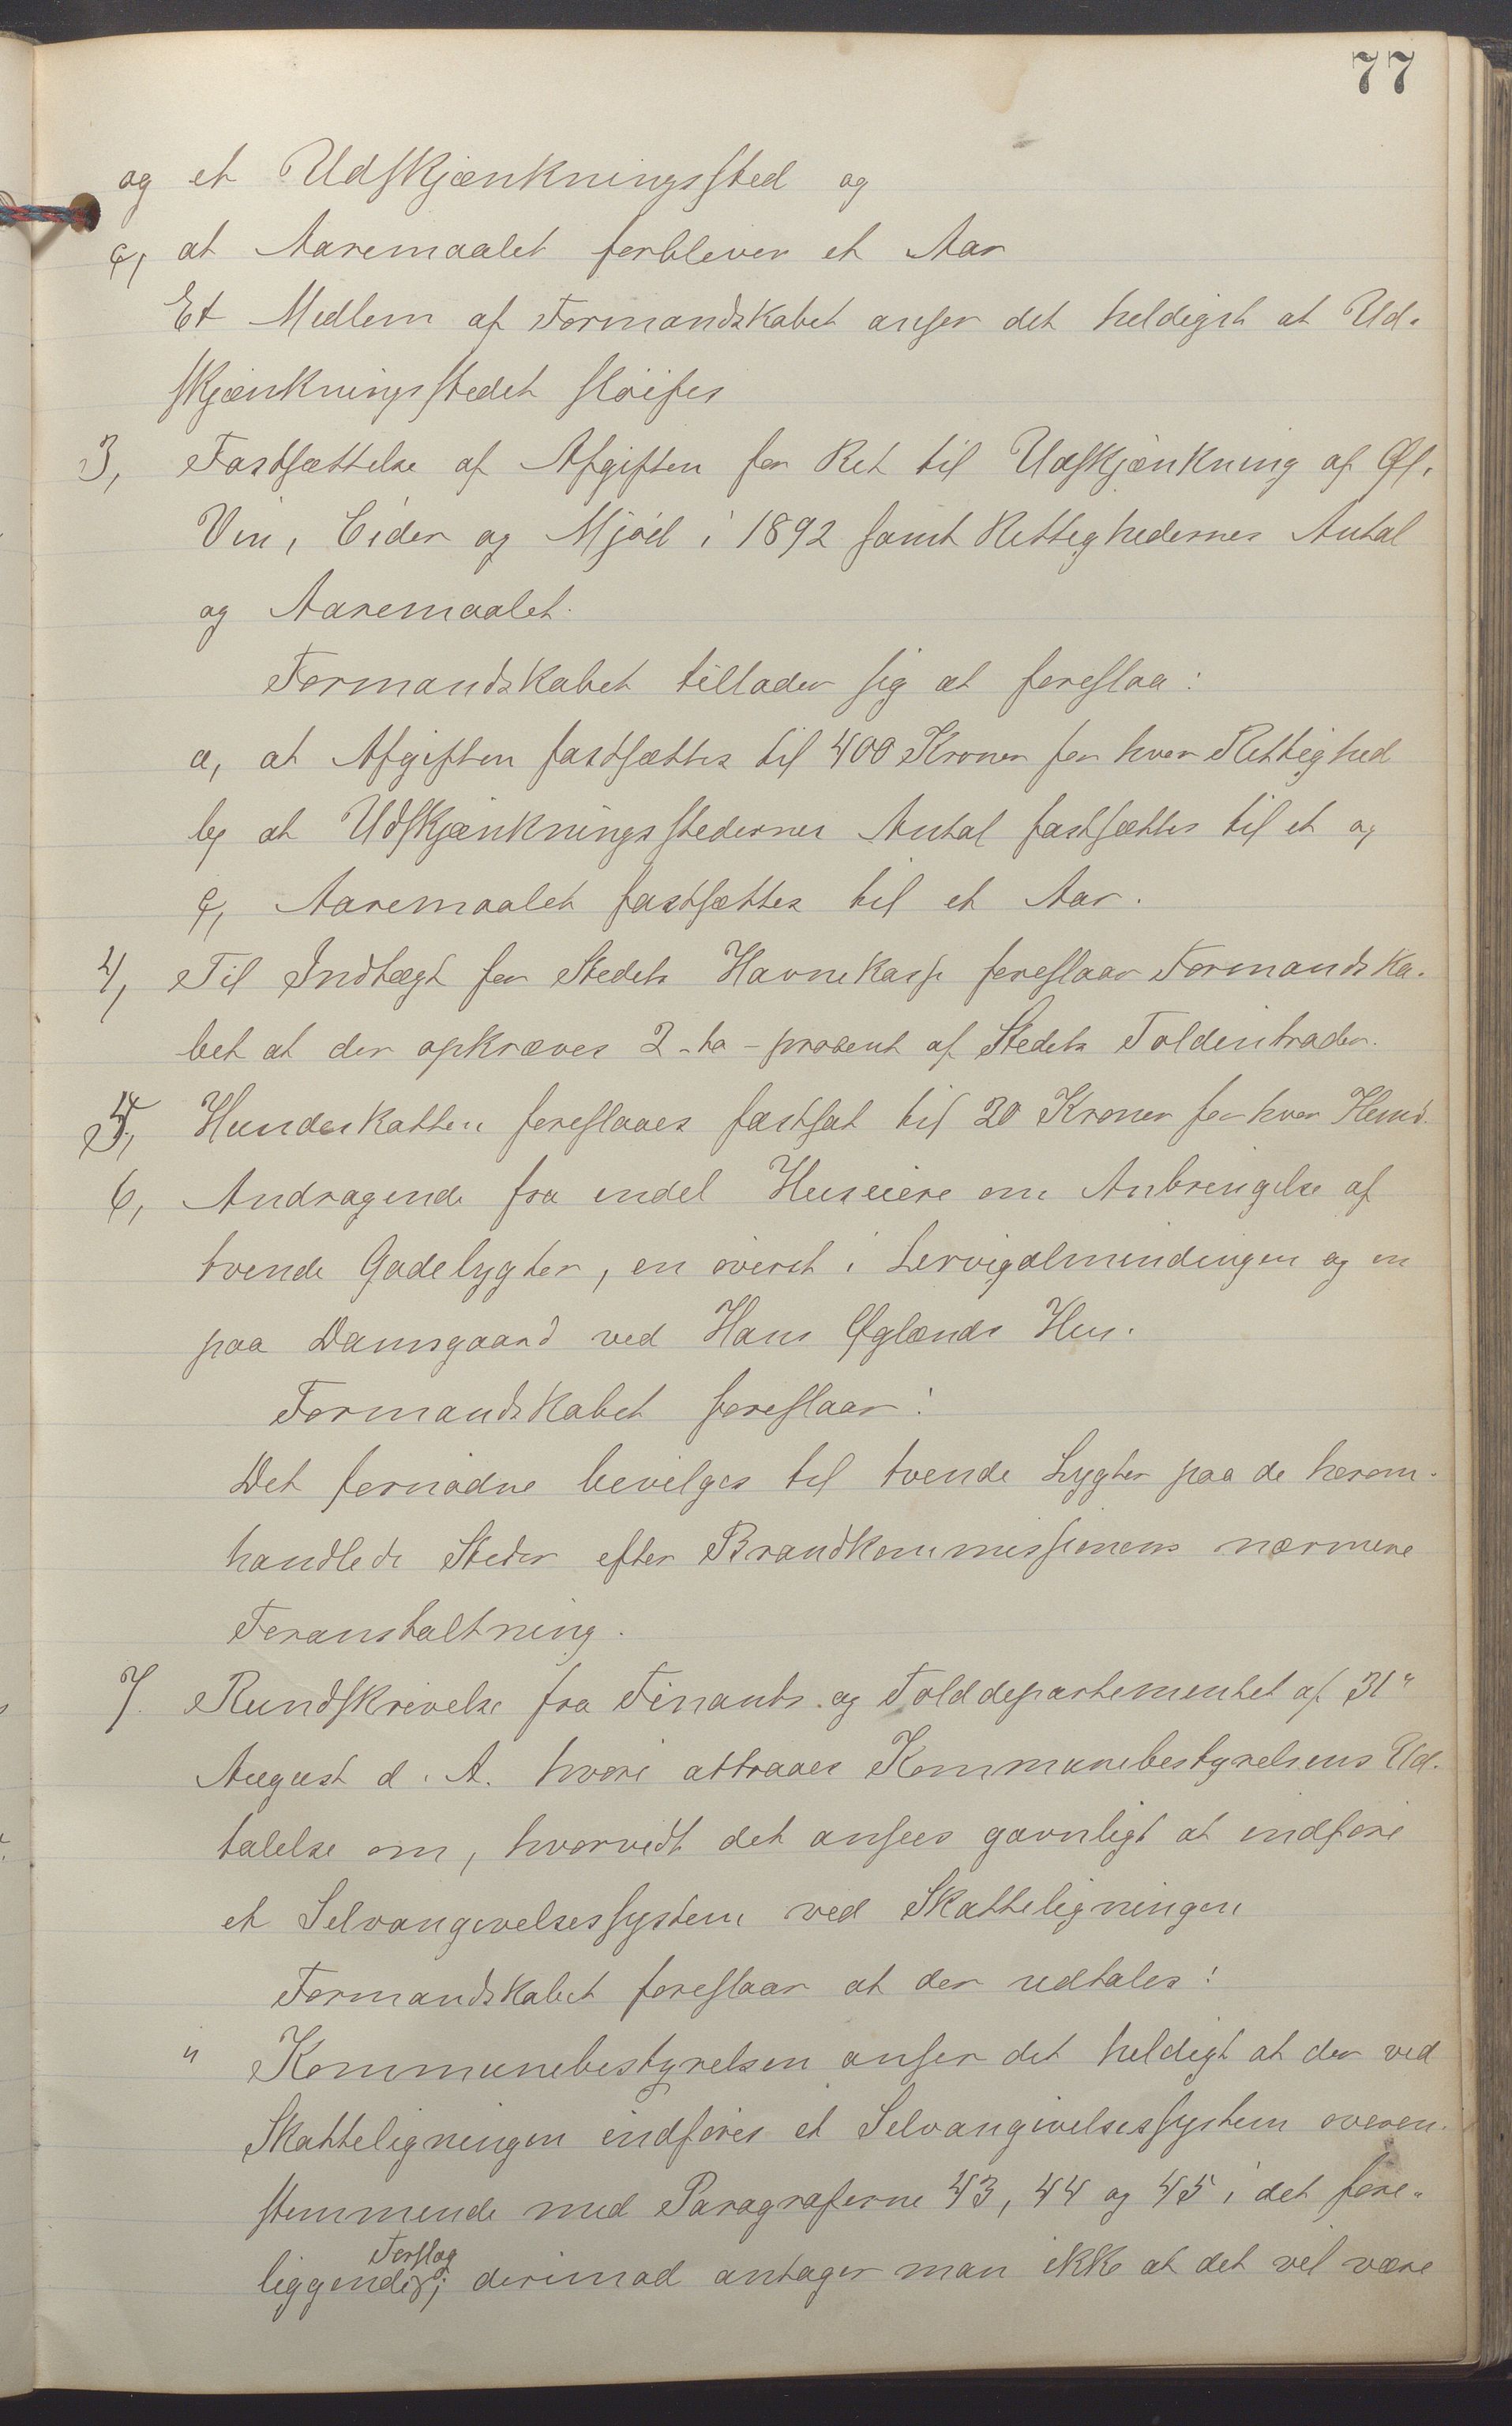 77
og et Udskjænkningssted og
c, at Aaremaalet forbliver et Aar
Et Medlem af Formandskabet anser det heldigst at Ud-
skjænkningsstedet sløifes
3, Fastsættelse af Afgiften for Ret til Udskjænkning af Øl,
Vin, Cider og Mjød i 1892 samt Rettighedernes Antal
og Aaremaalet.
Formandskabet tillader sig at foreslaa:
a, at Afgiften fastsættes til 400 Kroner for hver Rettighed
b, at Udskjænkningsstedernes Antal fastsættes til et og
c, Aaremaalet fastsættes til et Aar.
4, Til Indtægt for Stedets Havnekasse foreslaar Formandska-
bet at der opkræves 2-to-procent af Stedets Toldintrader.
5, Hundeskatten foreslaaes fastsat til 20 Kroner for hver Hund.
6, Andragende fra endel Huseiere om Anbringelse af
tvende Gadelygter, en øverst i Lervigalmindingen og en
paa Damsgaard ved Hans Øglænds Hus.
Formandskabet foreslaar:
Det fornødne bevilges til tvende Lygter paa de herom-
handlede Steder efter Brandkommissionens nærmere
Foranstaltning.
7. Rundskrivelse fra Finants- og Tolddepartementet af 31"
August d. A. hvori attraaes Kommunebestyrelsens Ud-
talelse om, hvorvidt det ansees gavnligt at indføre
et Selvangivelsessystem ved Skatteligningen
Formandskabet foreslaar at der udtales:
" Kommunebestyrelsen anser det heldigt at der ved
Skatteligningen indføres et Selvangivelsessystem overen-
stemmende med Paragraferne 43, 44 og 45 i det fore-
liggende Forslag; derimod antager man ikke at det vil være